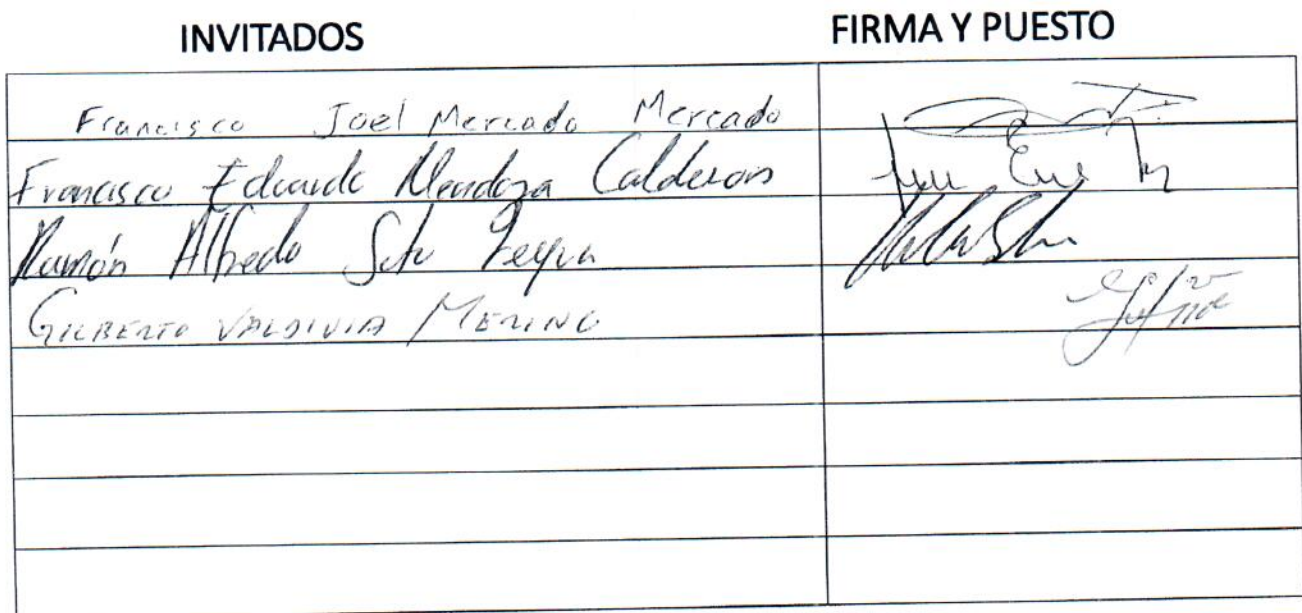 INVITADOS FIRMA Y PUESTO
Francisco Joel Mercado Mercado
Francisco Eduardo Mendoza Calderon
Ramón Alfredo Soto
GILBERTO VALDIVIA MERINO